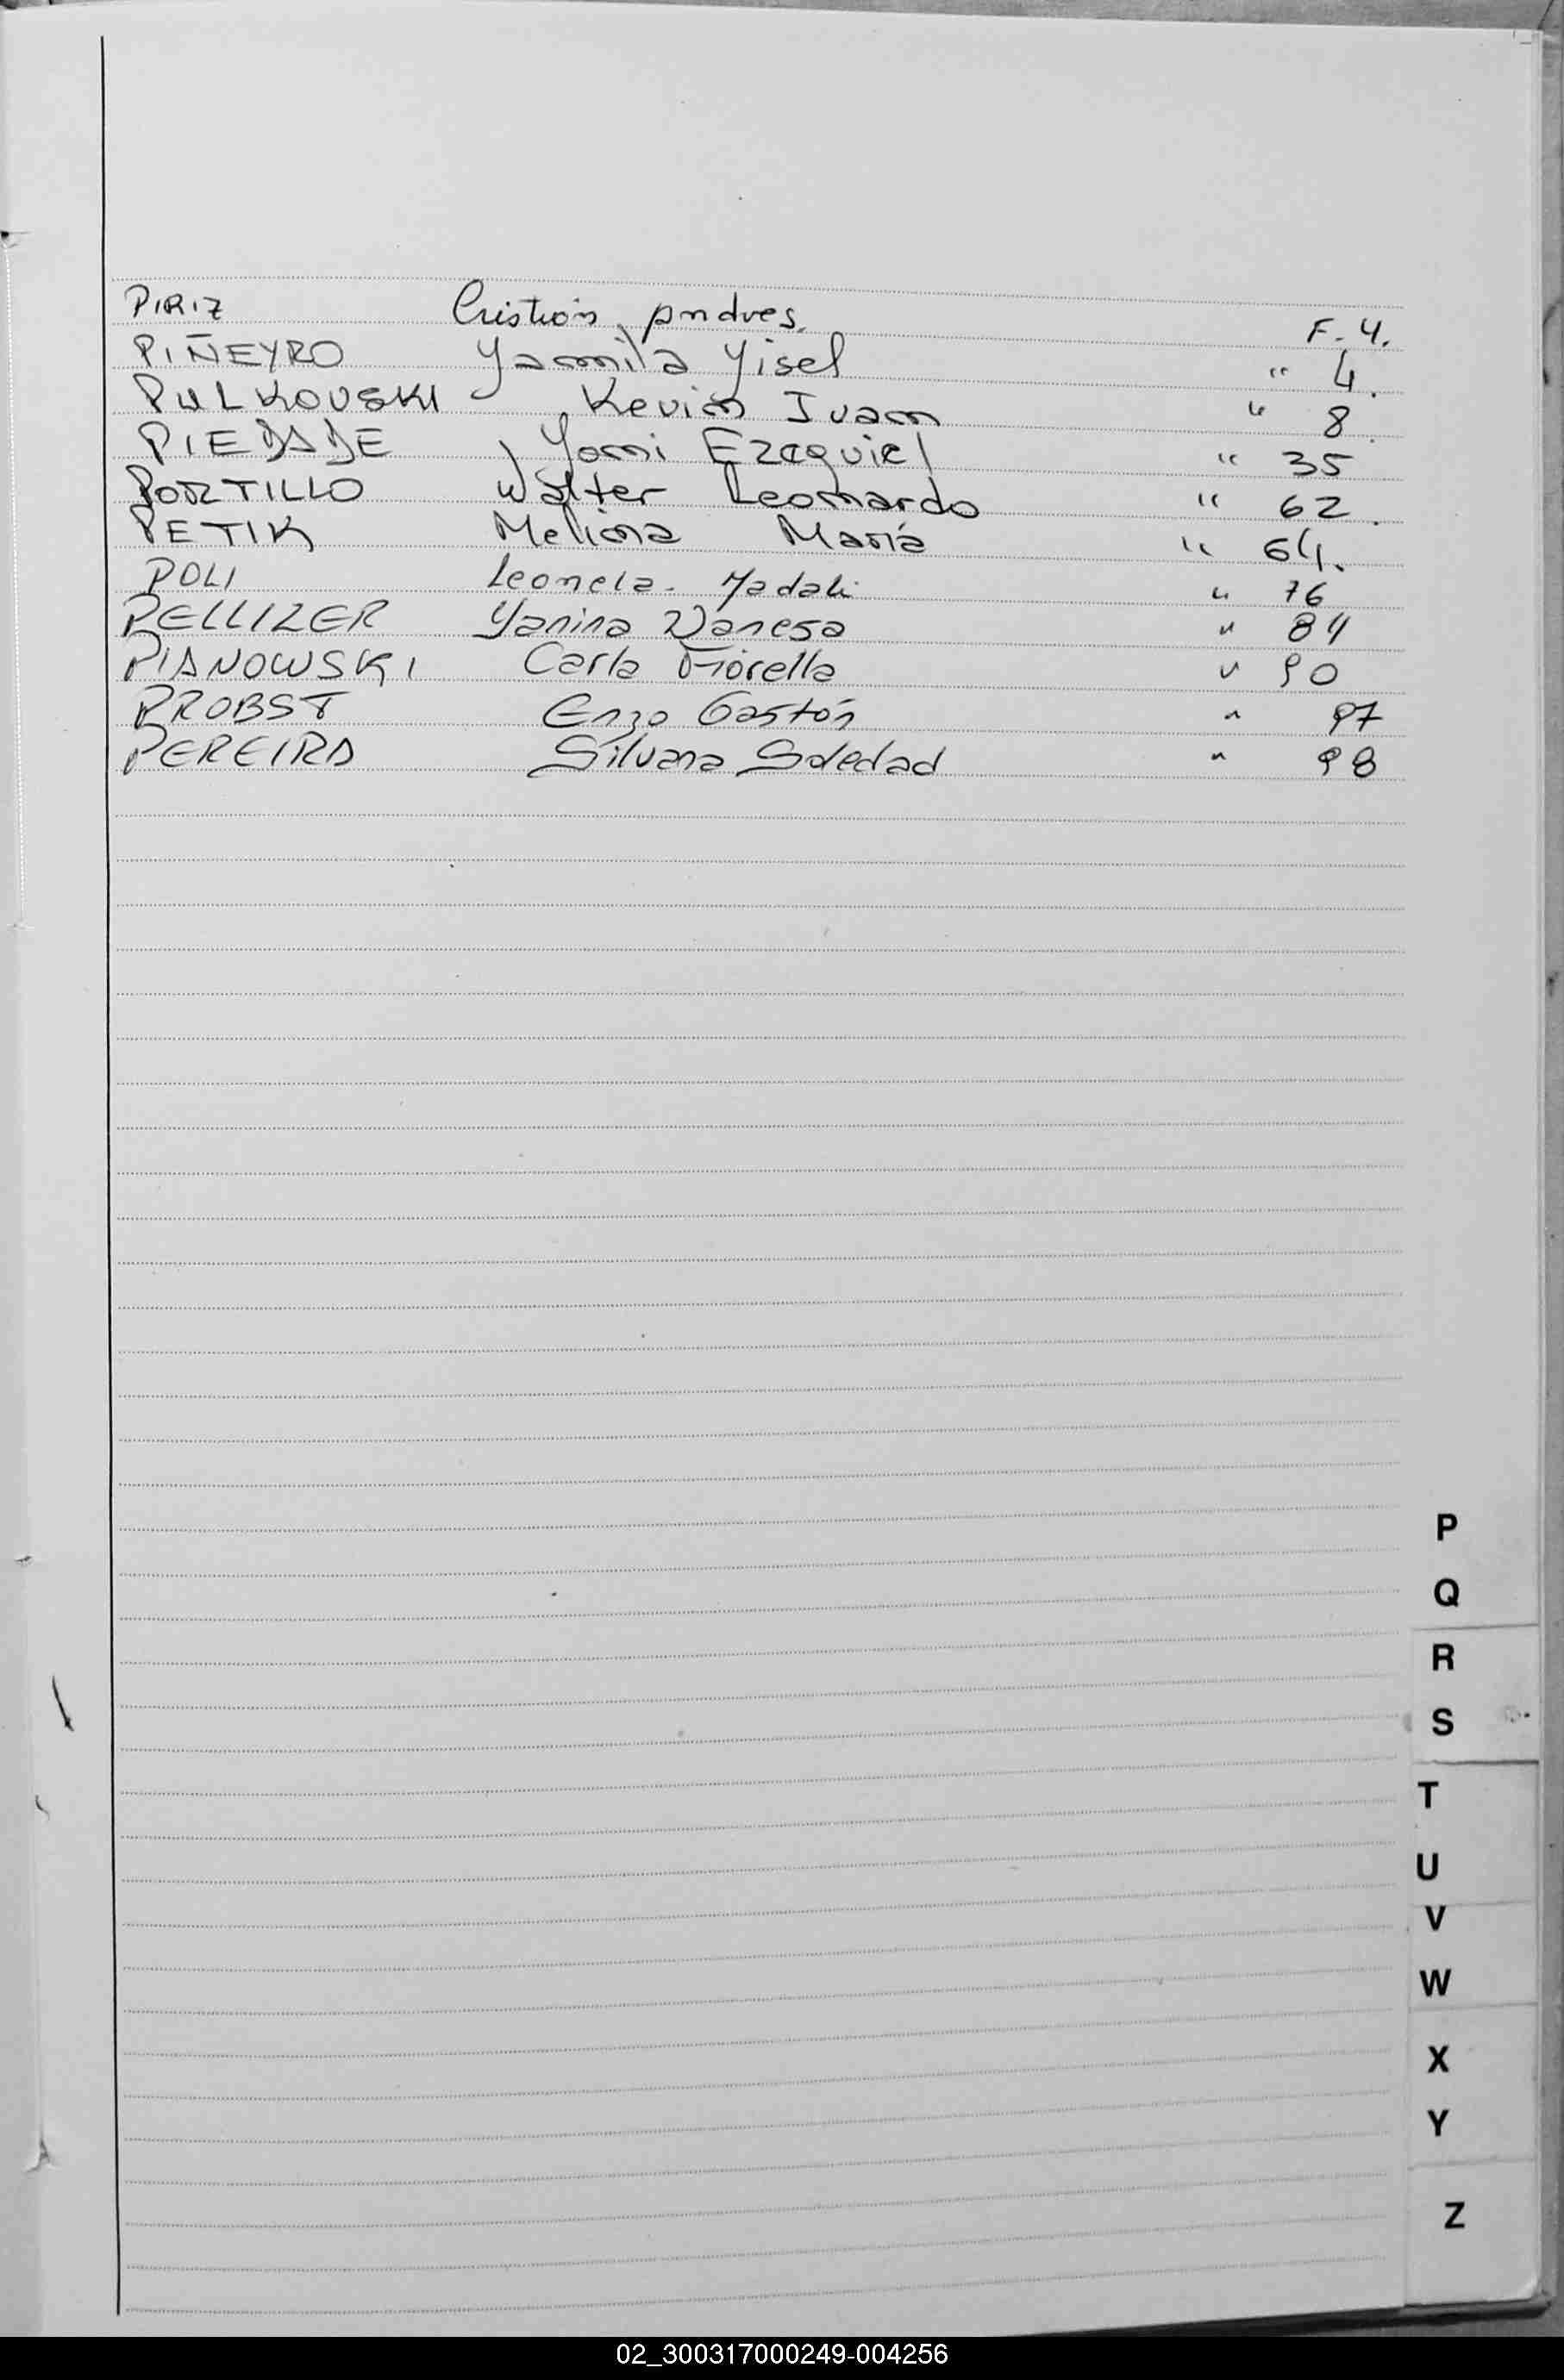 PIRIZ Cristian Andres. F. 4.
PIÑEYRO Yamila Yisel " 4.
PULKOUSKI Kevin Ivan " 8.
PIEDADE Yoni Ezequiel " 35
PORTILLO Walter Leonardo " 62.
PETIK Melina María " 64.
POLI Leonela. " 76
PELLIZER Yanina Vanesa " 84
PIANOWSKI Carla Fiorella " 90
PROBST Enzo Gastón " 97
PEREIRA Silvana Soledad " 98
P
Q
R
S
T
U
V
W
X
Y
Z
02_300317000249-004256